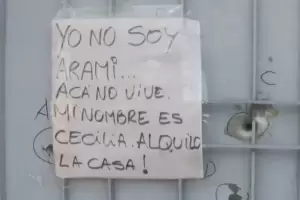 YO NO SOY
ARAMI...
ACÁ NO VIVE.
MI NOMBRE ES
CECILIA. ALQUILO
LA CASA!